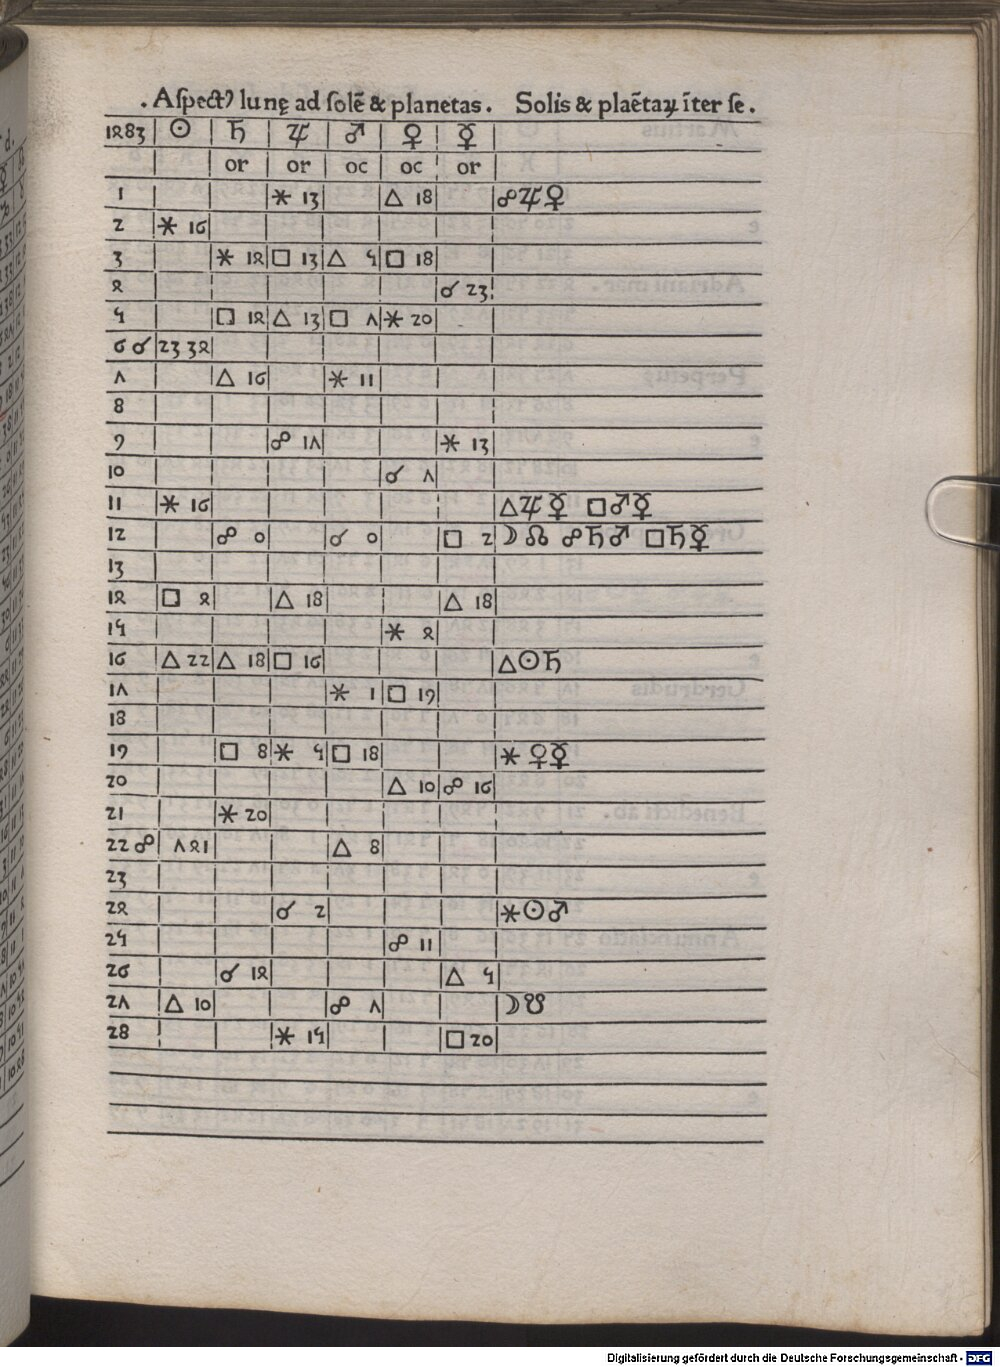 . Aſpectꝰ lunę ad ſolē & planetas . Solis & plaētaꝝ īter ſe .
1483 ☉ ♄ ♃ ♂ ♀ ☿
or or oc oc or
1 ⚹ 13 △ 18 ☍♃♀
2 ⚹ 16
3 ⚹ 14 □ 13 △ 5 □ 18
4 ☌ 23
5 □ 14 △ 13 □ 7 ⚹ 20
6 ☌ 23 34
7 △ 16 ⚹ 11
8
9 ☍ 17 ⚹ 13
10 ☌ 7
11 ⚹ 16 △♃☿ □♂☿
12 ☍ 0 ☌ 0 □ 2 ☽☊ ☍♄♂ □♄☿
13
14 □ 4 △ 18 △ 18
15 ⚹ 4
16 △ 22 △ 18 □ 16 △☉♄
17 ⚹ 1 □ 19
18
19 □ 8 ⚹ 5 □ 18 ⚹♀☿
20 △ 10 ☍ 16
21 ⚹ 20
22 ☍ 7 41 △ 8
23
24 ☌ 2 ⚹☉♂
25 ☍ 11
26 ☌ 14 △ 5
27 △ 10 ☍ 7 ☽☋
28 ⚹ 15 □ 20
Digitalisierung gefördert durch die Deutsche Forschungsgemeinschaft - DFG